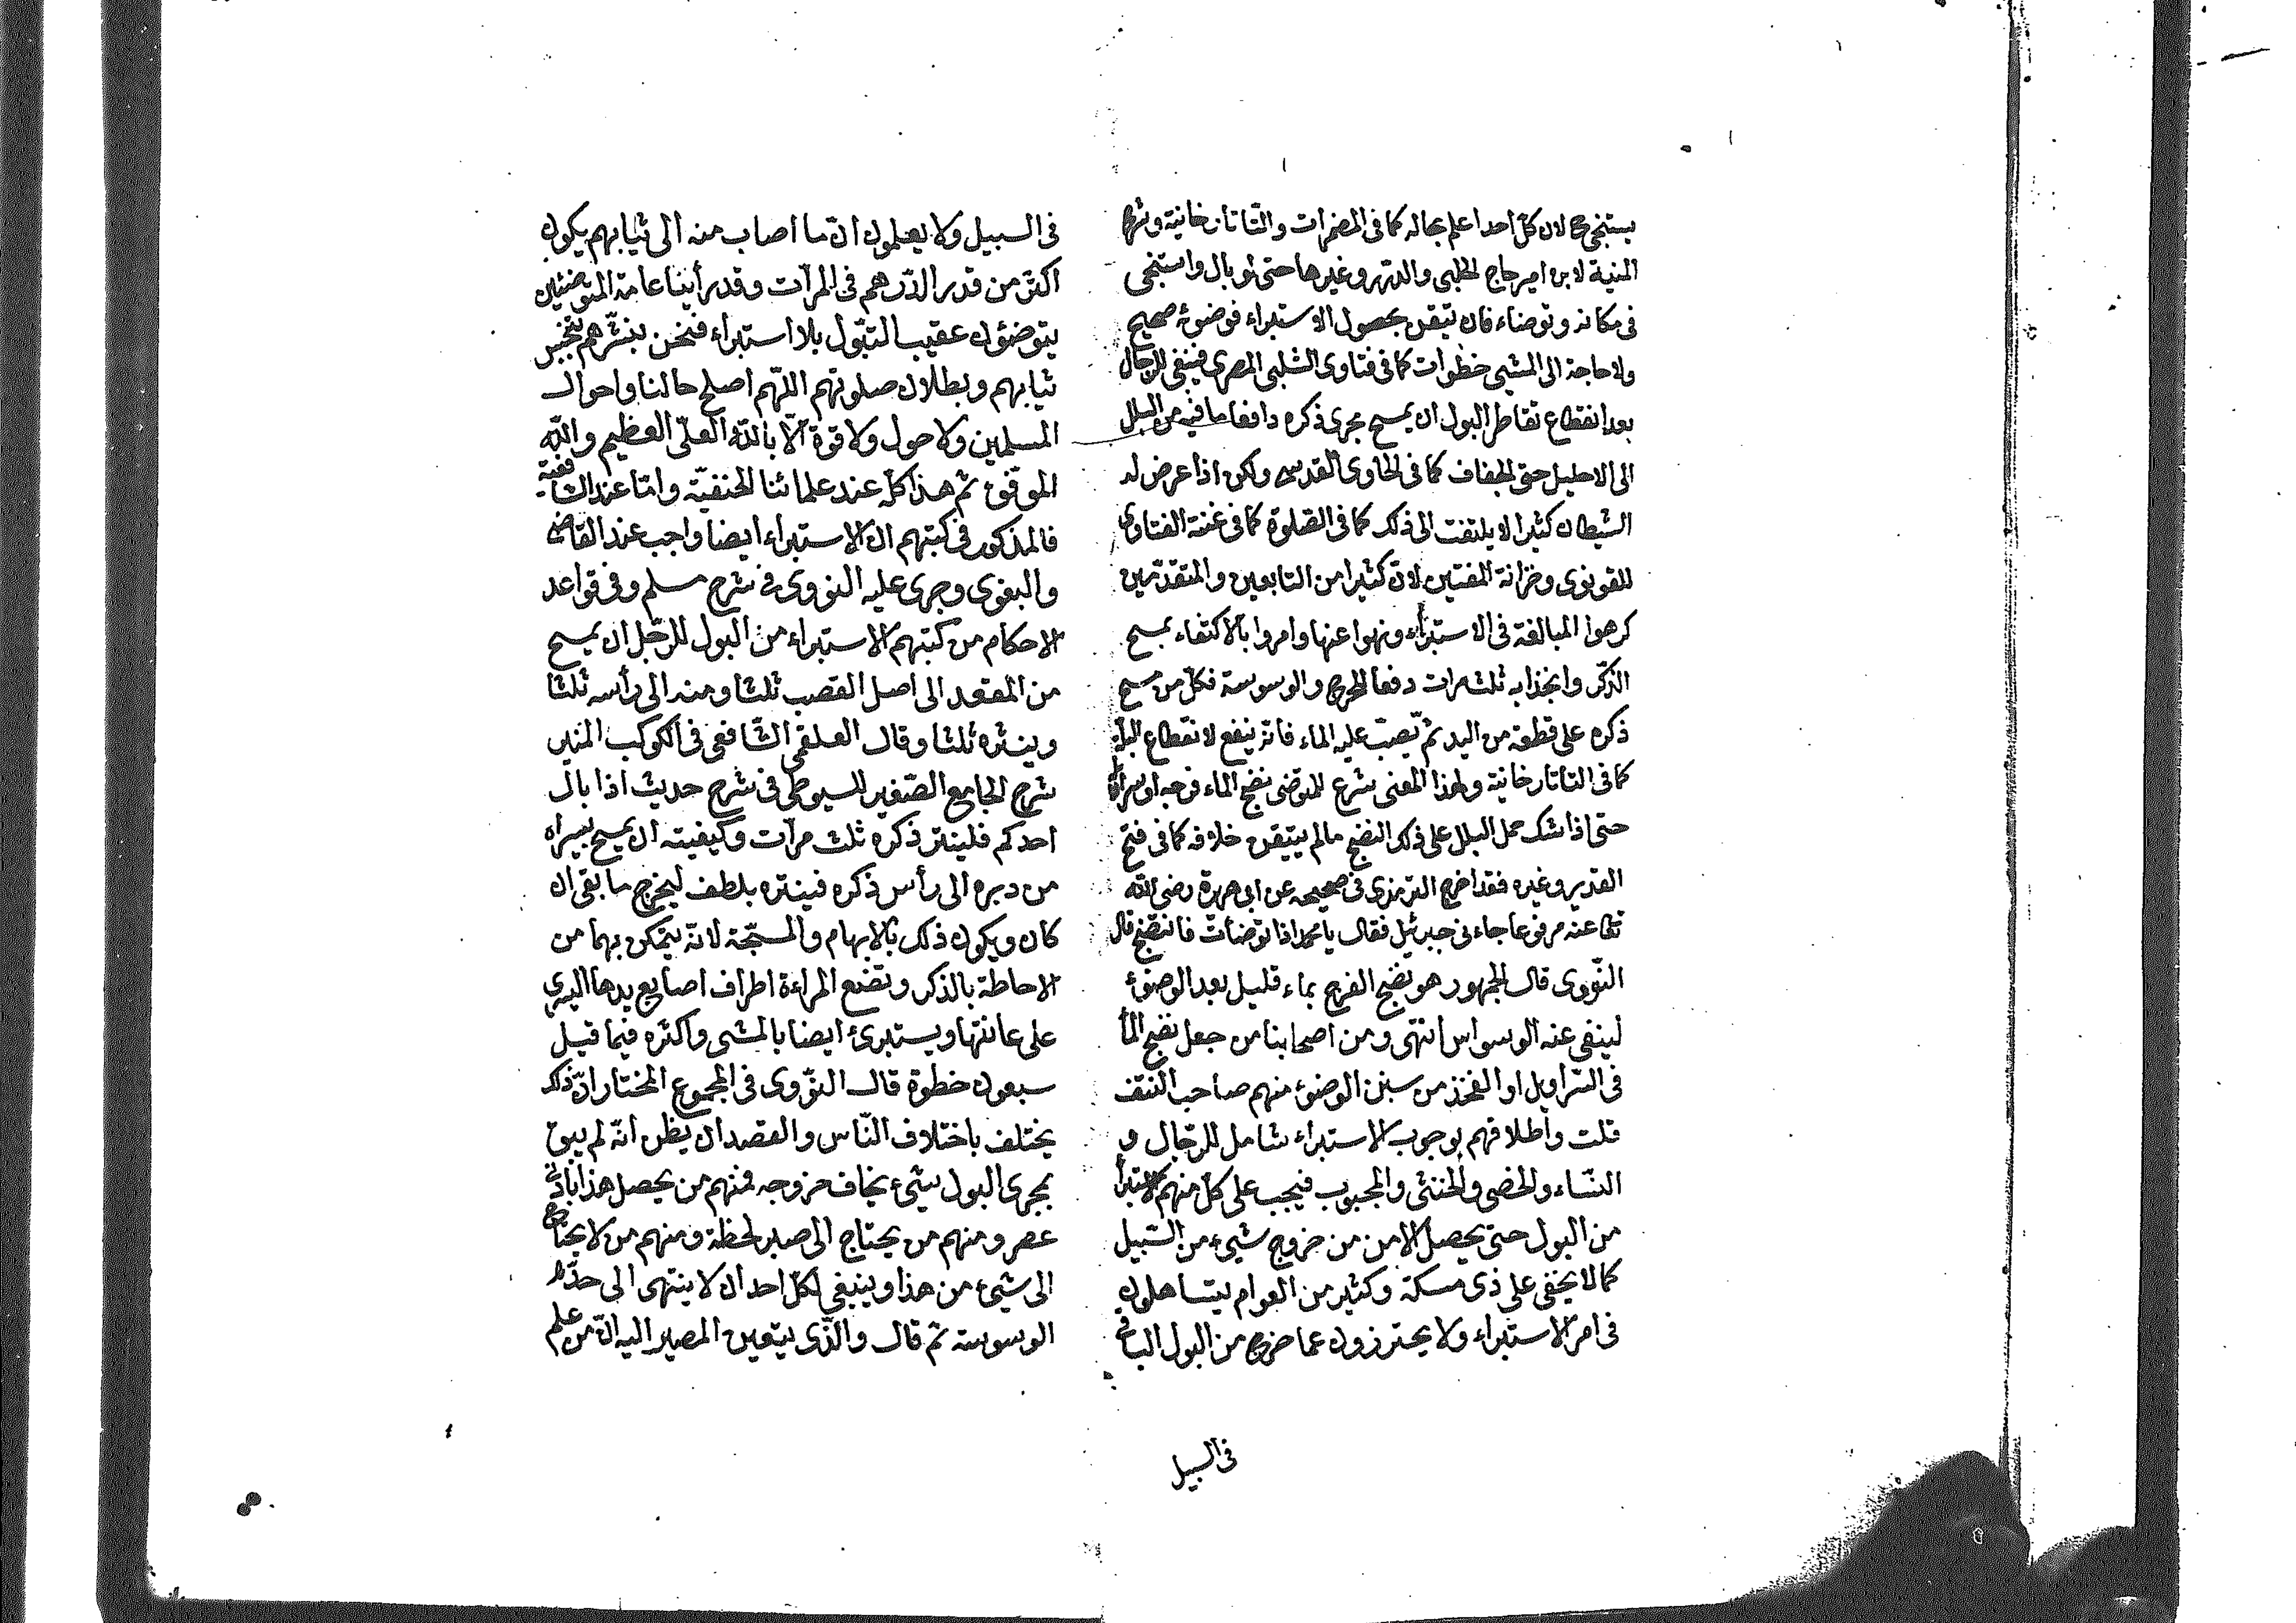 يستنجى ح لان كل احد اعلم بحاله كما فى المضمرات والتاتارخانية وشرح
المنية لابن امير حاج الحلبى والدرر وغيرها حتى لو بال واستنجى
فى مكانه وتوضاء فان تيقن بحصول الاستبراء فوضوئه صحيح
ولا حاجة الى المشى خطوات كما فى فتاوى الشلبى المصرى فينبغى للرجال
بعد انقطاع تقاطر البول ان يمسح مجرى ذكره دافعا ما فيه من البلل
الى الاحليل حتى الجفاف كما فى الحاوى القدسى ولكن اذا عرض له
الشيطان كثيرا لا يلتفت الى ذلك كما فى الصلوة كما فى غنية الفتاوى
للقونوى وخزانة المفتين لان كثيرا من التابعين والمتقدمين
كرهوا المبالغة فى الاستبراء ونهوا عنها وامروا بالاكتفاء بمسح
الذكر وانجذابه ثلث مرات دفعا للحرج والوسوسة فكل من مسح
ذكره على قطعة من اليد ثم تصبّ عليه الماء فانه ينفع لانقطاع البلة
كما فى التاتارخانية ولهذا المعنى شرع للمتوضى نضح الماء فرجه او سراويله
حتى اذا شك حمل البلل على ذلك النضح ما لم يتيقن خلافه كما فى فتح
القدير وغيره فقد اخرج الترمذى فى صحيحه عن ابى هريرة رضى الله
تعا عنه مرفوعا جاءنى جبرئيل فقال يا محمد اذا توضأت فانتضح قال
النووى قال الجمهور هو نضح الفرج بماء قليل بعد الوضوء
لينفى عنه الوسواس انتهى ومن اصحابنا من جعل نضح الماء
فى السراويل او الفخذ من سنن الوضوء منهم صاحب النتف
قلت واطلاقهم بوجوب الاستبراء شامل للرجال و
النساء والخصى والخنثى والمجبوب فيجب على كل منهم الاستبراء
من البول حتى يحصل الامن من خروج شيء من السبيل
كما لا يخفى على ذى مسكة وكثير من العوام يتساهلون
فى امر الاستبراء ولا يحترزون عما خرج من البول الباقى
فى السبيل
فى السبيل ولا يعلمون ان ما اصاب منه الى ثيابهم يكون
اكثر من قدر الدرهم فى المرّات وقد رأينا عامة المتوضئين
يتوضئون عقيب التبول بلا استبراء فنحن نبشرهم بتنجيس
ثيابهم وبطلان صلوتهم اللهم اصلح حالنا واحوال
المسلمين ولا حول ولا قوة الا بالله العلى العظيم والله
الموفق ثم هذا كله عند علمائنا الحنفية وامّا عند الشافعية
فالمذكور فى كتبهم ان الاستبراء ايضا واجب عند القاضى
والبغوى وجرى عليه النووى فى شرح مسلم وفى قواعد
الاحكام من كتبهم الاستبراء من البول للرجل ان يمسح
من المقعد الى اصل القصب ثلثا ومنه الى رأسه ثلثا
وينثره ثلثا وقال العلقمى الشافعى فى الكوكب المنير
شرح الجامع الصغير للسيوطى فى شرح حديث اذا بال
احدكم فلينتر ذكره ثلث مرات وكيفيته ان يمسح بيسراه
من دبره الى رأس ذكره فينتره بلطف ليخرج ما بقى ان
كان ويكون ذلك بالابهام والمسبّحة لانه يتمكن بهما من
الاحاطة بالذكر وتضع المراءة اطراف اصابع يدها اليسرى
على عانتها ويستبرئ ايضا بالمشى واكثره فيما قيل
سبعون خطوة قال النووى فى المجموع المختار ان ذلك
يختلف باختلاف الناس والقصد ان يظن انه لم يبق
بمجرى البول شيء يخاف خروجه فمنهم من يحصل هذا بادنى
عصر ومنهم من يحتاج الى صبر لحظة ومنهم من لا يحتاج
الى شيء من هذا وينبغى لكل احد ان لا ينتهى الى حد
الوسوسة ثم قال والذى يتعين المصير اليه ان من علم